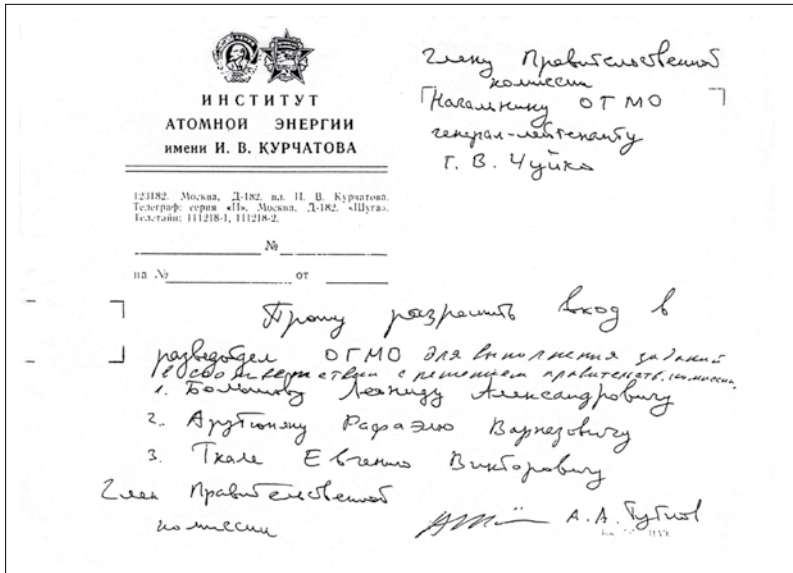 ИНСТИТУТ
АТОМНОЙ ЭНЕРГИИ
имени И. В. КУРЧАТОВА
123182. Москва, Д-182. пл. И. В. Курчатова.
Телеграф: серия «П», Москва, Д-182. «Шуга».
Телетайп: 111218-1, 111218-2.
№
на № от
Члену Правительственной
комиссии
Начальнику ОГМО
генерал-лейтенанту
Г. В. Чуйко
Прошу разрешить вход в
разведотдел ОГМО для выполнения заданий
в соответствии с решением правительств. комиссии.
1. Большову Леониду Александровичу
2. Арутюняну Рафаэлю Варназовичу
3. Ткале Евгению Викторовичу
Член Правительственной
комиссии
А. А.